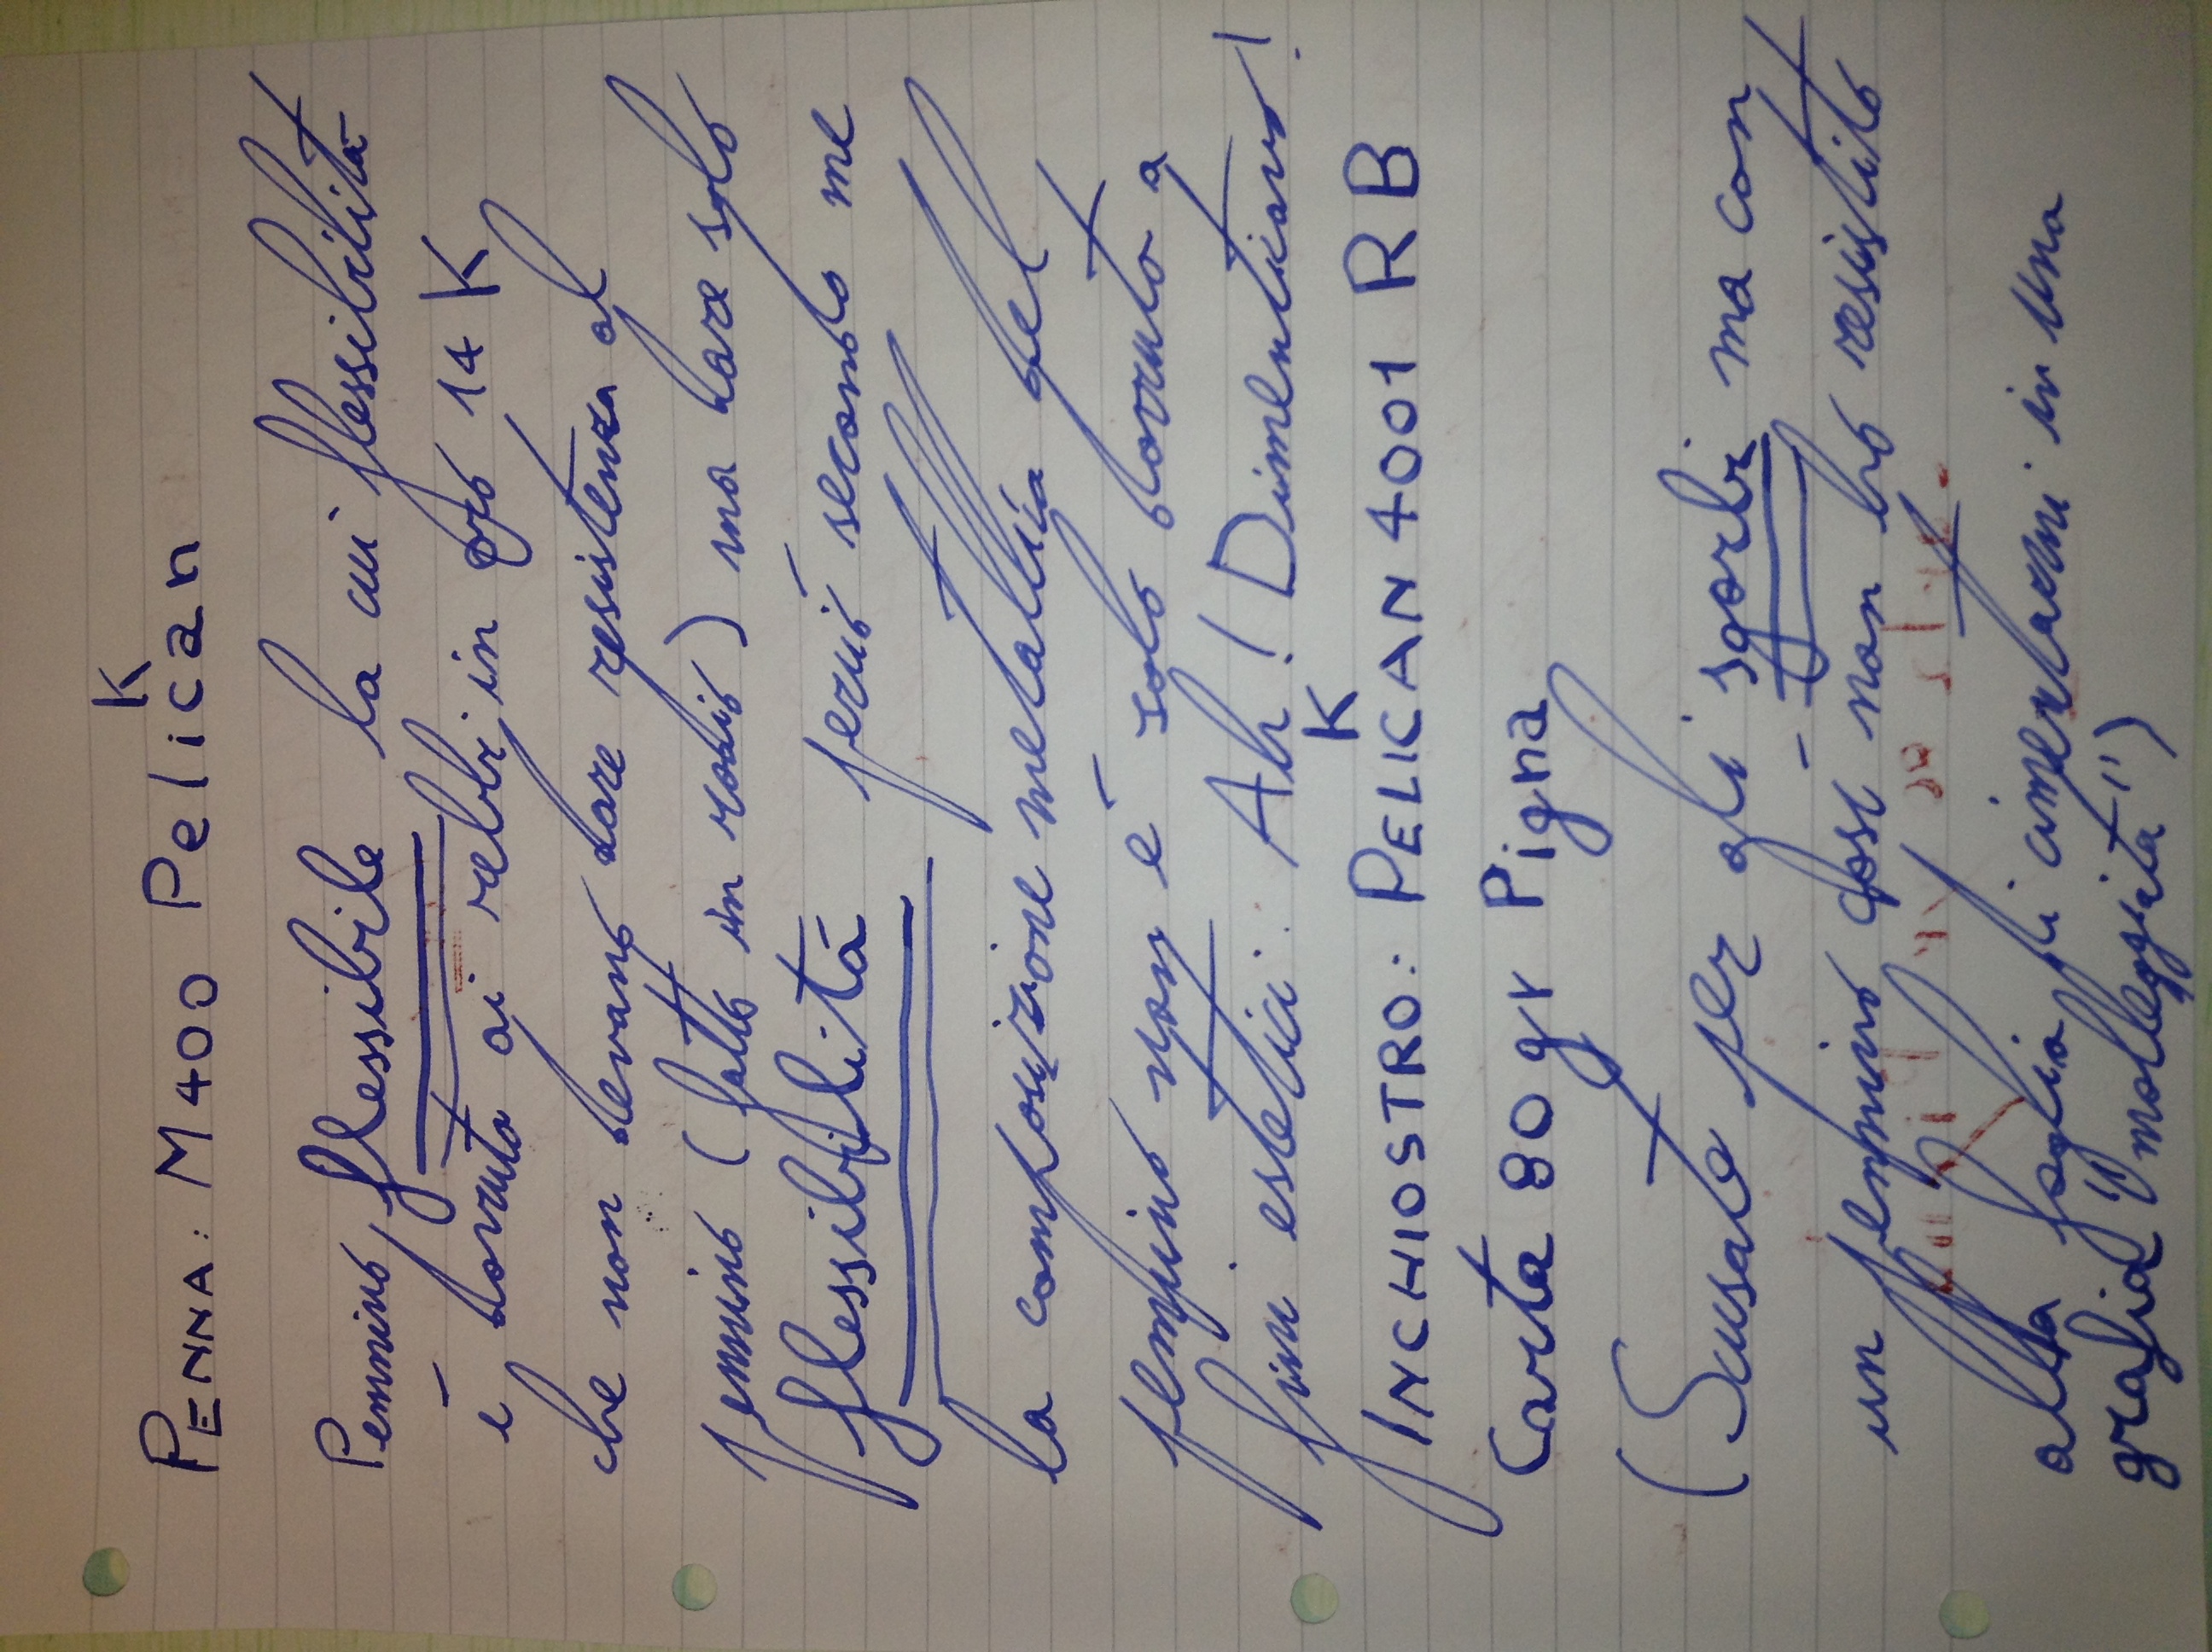 K
PENNA: M400 Pelican
Pennino, flessibile la cui flessibilità
é dovuta ai rebbi in oro 14 K
che non devano dare resistenza al
pennino (fatto in rodio) ma dare solo
flessibilitá perció secondo me
la composizione metallica del
pennino non é solo dovuto a
fini estetici. Ah! Dimenticavo!
K
INCHIOSTRO: PELICAN 4001 RB
Carta 80 gr Pigna
(Scusate per gli sgorbi ma con
un pennino cosí non ho resistito
alla foglia di cimentarmi in una
grafia "molleggiata")